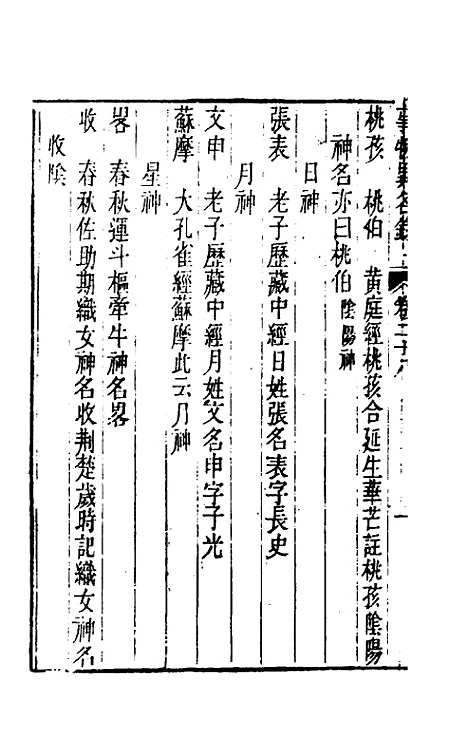 事物異名錄 卷二十八
桃孩　桃伯　黄庭經桃孩合延生華芒註桃孩陰陽
神名亦曰桃伯陰陽神
日神
張表　老子歷藏中經日姓張名表字長史
月神
文申　老子歷藏中經月姓文名申字子光
蘇摩　大孔雀經蘇摩此云月神
星神
畧　春秋運斗樞牽牛神名畧
收　春秋佐助期織女神名收荆楚歲時記織女神名
收陰